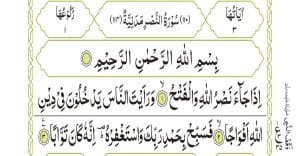 اٰيَاتُهَا ٣
(١١٠) سُوْرَةُ النَّصْرِ مَدَنِيَّةٌ (١١٤)
رُكُوْعُهَا ١
بِسْمِ اللهِ الرَّحْمٰنِ الرَّحِيْمِ
اِذَا جَآءَ نَصْرُ اللهِ وَالْفَتْحُ ۝١ وَرَاَيْتَ النَّاسَ يَدْخُلُوْنَ فِيْ دِيْنِ
اللهِ اَفْوَاجًا ۝٢ فَسَبِّحْ بِحَمْدِ رَبِّكَ وَاسْتَغْفِرْهُ ؕ اِنَّهٗ كَانَ تَوَّابًا ۝٣